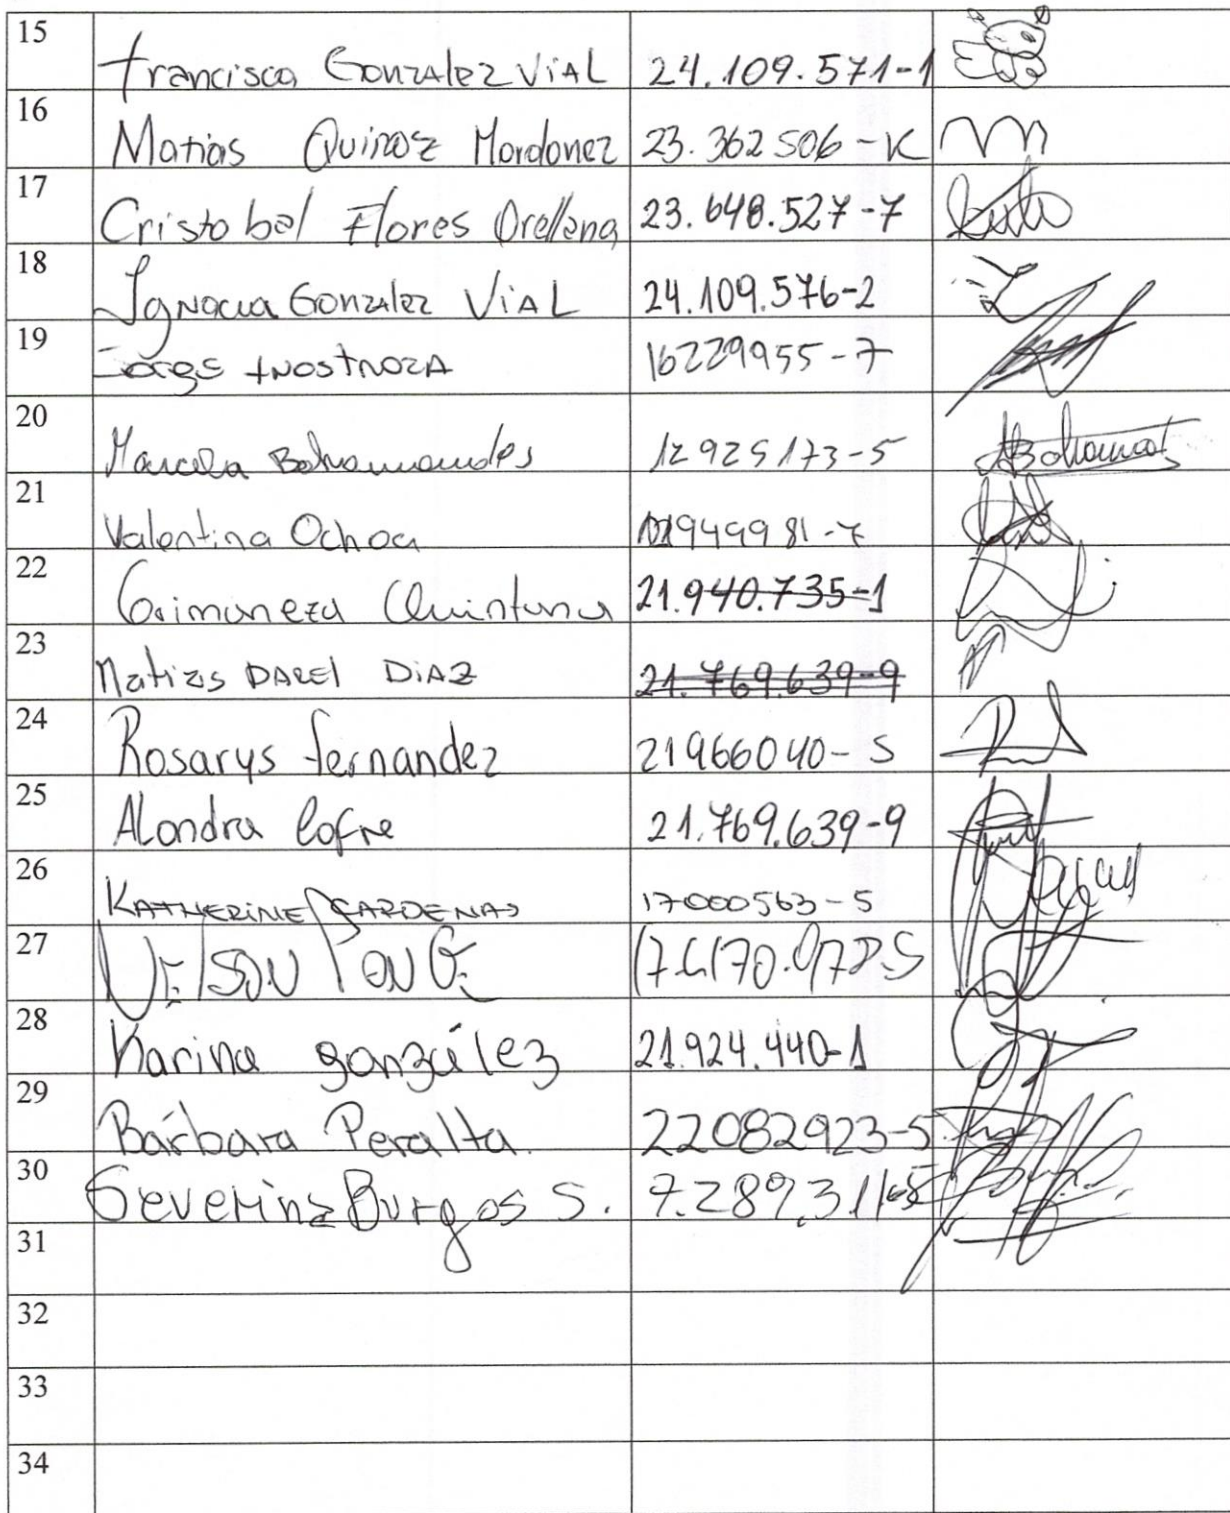 15 Francisca Gonzalez Vial 24.109.571-1
16 Matias Quiroz Mardonez 23.362506-K
17 Cristobal Flores Orellana 23.648.527-7
18 Ignacia Gonzalez Vial 24.109.576-2
19 Jorge Inostroza 16229955-7
20 Marcela Bahamondes 12925173-5
21 Valentina Ochoa
22 Quintana 21.940.735-1
23 Matias DAREL DiAZ 21.769.639-9
24 Rosarys fernandez 21966040-5
25 Alondra Cofre 21.769.639-9
26 KATHERINE CARDENAS 17000563-5
27 NELSON
28 Karina gonzález 21.924.440-1
29 Bárbara Peralta. 22082923-5
30 Severina Burgos S.
31
32
33
34